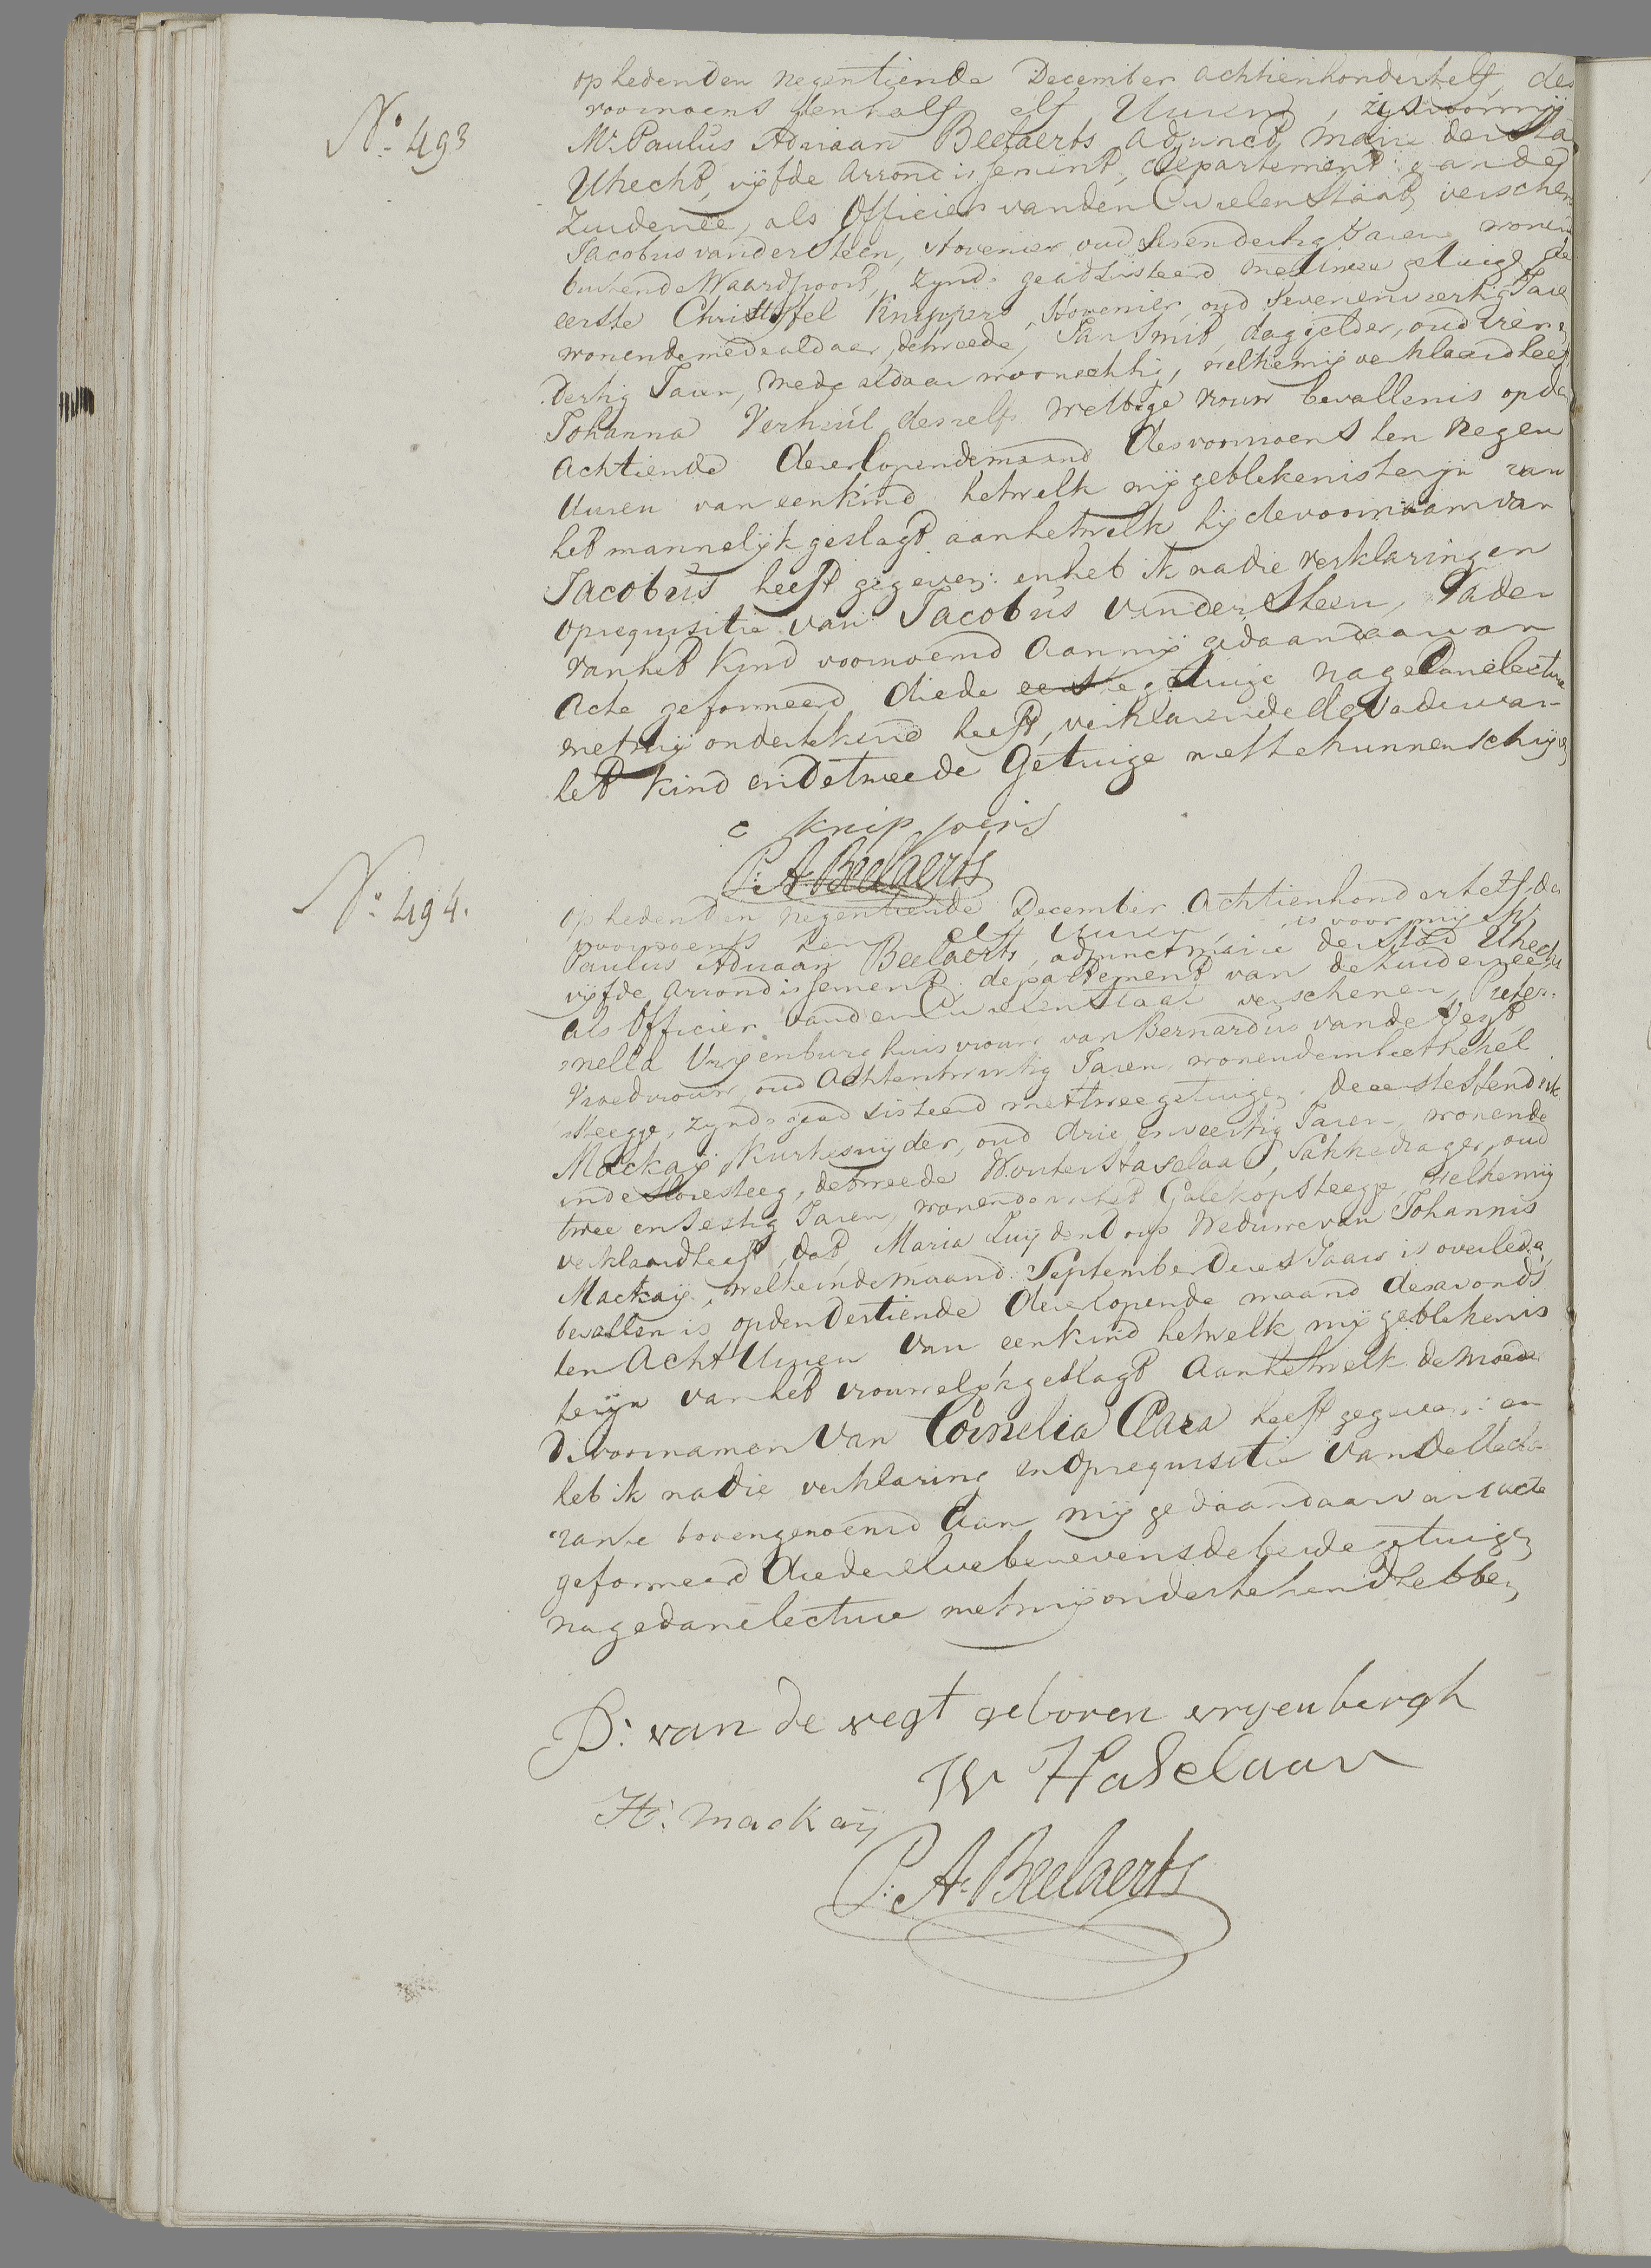 No. 493
op heden den negentiende December achtienhondertelf, des
voormoens ten half elf Uuren, is voor mij
Mr. Paulus Adriaan Beelaerts adjunct Maire der Sta
Utrecht, vijfde Arrondissement, departement van de
Zuiderzee, als Officier van den Civielen Staat, verschen
Jacobus van der Steen, Hovenier oud sesendertig Jaren wonen
buiten de Waardpoort, zynde geadsisteerd met twee getuige de
eerste Christoffel Knippers, Hovenier, oud sevenenveertig Jare
wonende mede aldaar, de tweede, Jan Smit, daggelder, oud vier en
dertig Jaren, mede aldaar woonachtig, welke mij verklaard heeft
Johanna Verheul deszelfs wettige vrouw bevallen is op de
achtiende dezer lopende maand des voormoens ten negen
Uuren van een kind hetwelk mij gebleken is te zijn van
het mannelijk geslagt aan hetwelk hij de voornaam van
Jacobus heeft gegeven: en heb ik na die verklaringen
op requisitie van Jacobus van der Steen, Vader
van het kind voornoemd aan mij gedaan daarvan
acte geformeerd die de eerste getuige na gedane lecture
met mij ondertekend heeft, verklarende de Vader van
het kind en de tweede Getuige niet te kunnen schrijven
C Knippers
P: A: Beelaerts
No. 494.
op heden den negentiende December Achtienhondertelf, des
voormoens ten elf Uuren, is voor mij Mr.
Paulus Adriaan Beelaerts, adjunct Maire der Stad Utrecht
vijfde Arrondissement departement van de Zuiderzee
als Officier van den Civielen Staat verschenen, Peter-
nella Vrijenburg huisvrouw van Bernardus van de Vegt
Vroedvrouw, oud Achtentwintig Jaren, wonende in het Ketel
steegge, zynde geadsisteerd met twee getuigen de eerste Hendrik
Mackaij Kurkesnijder, oud drie en veertig Jaren, wonende
in de steeg, de tweede Wouter Haselaar, Sakkedrager, oud
twee en Sestig Jaren, wonende in het Galekopsteegge, welke mij
verklaard heeft, dat Maria Luijdendorp Weduwe van Johannis
Mackaij, welke in de maand September dezes Jaars is overleden
bevallen is op den dertiende dezer lopende maand des avonds
ten Acht Uuren van een kind hetwelk mij gebleken is
te zijn van het vrouwelijk geslagt aan hetwelk de Moeder
de voornamen van Cornelia Clara heeft gegeven: en
heb ik na die verklaring en op requisitie van de
bovengenoemd aan mij gedaan daarvan acte
geformeerd die dezelve benevens de beide getuigen
na gedane lecture met mij ondertekend hebben
P: van de vegt geboren vryenbergh
W Haselaar
H: Mackaij
P: A: Beelaerts